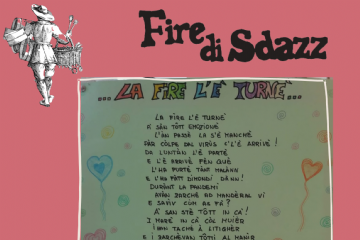 Fire di Sdazz
...LA FIRE L'É TURNÉ...
LA FIRE L'É TURNÉ
A SÄN TÔTT EMOZIONÉ
L'AN PASSÀ LA S'É MANCHÉ
PÄR COLPA DAL VIRUS F'L'É ARRIVÉ!
DA LUNTÀN L'É PARTÉ
E L'É ARRIVÉ FEN QUÉ
L'HA PURTÉ TANT MALÀNN
E L'HA FÀTT DIMONDI DÀNN!
DURANT LA PANDEMI
AVEN ZARCHÉ AD MANDÈRAL VI
E SAVIV COM AS FÀ?
Ä SAN STÉ TÔTT IN CÀ!
I MARÉ IN CÀ COL MUIÉR
IAN TACHÉ A LITIGHÉR
E I ZARCHÉVAN TÔTT AL MANIR